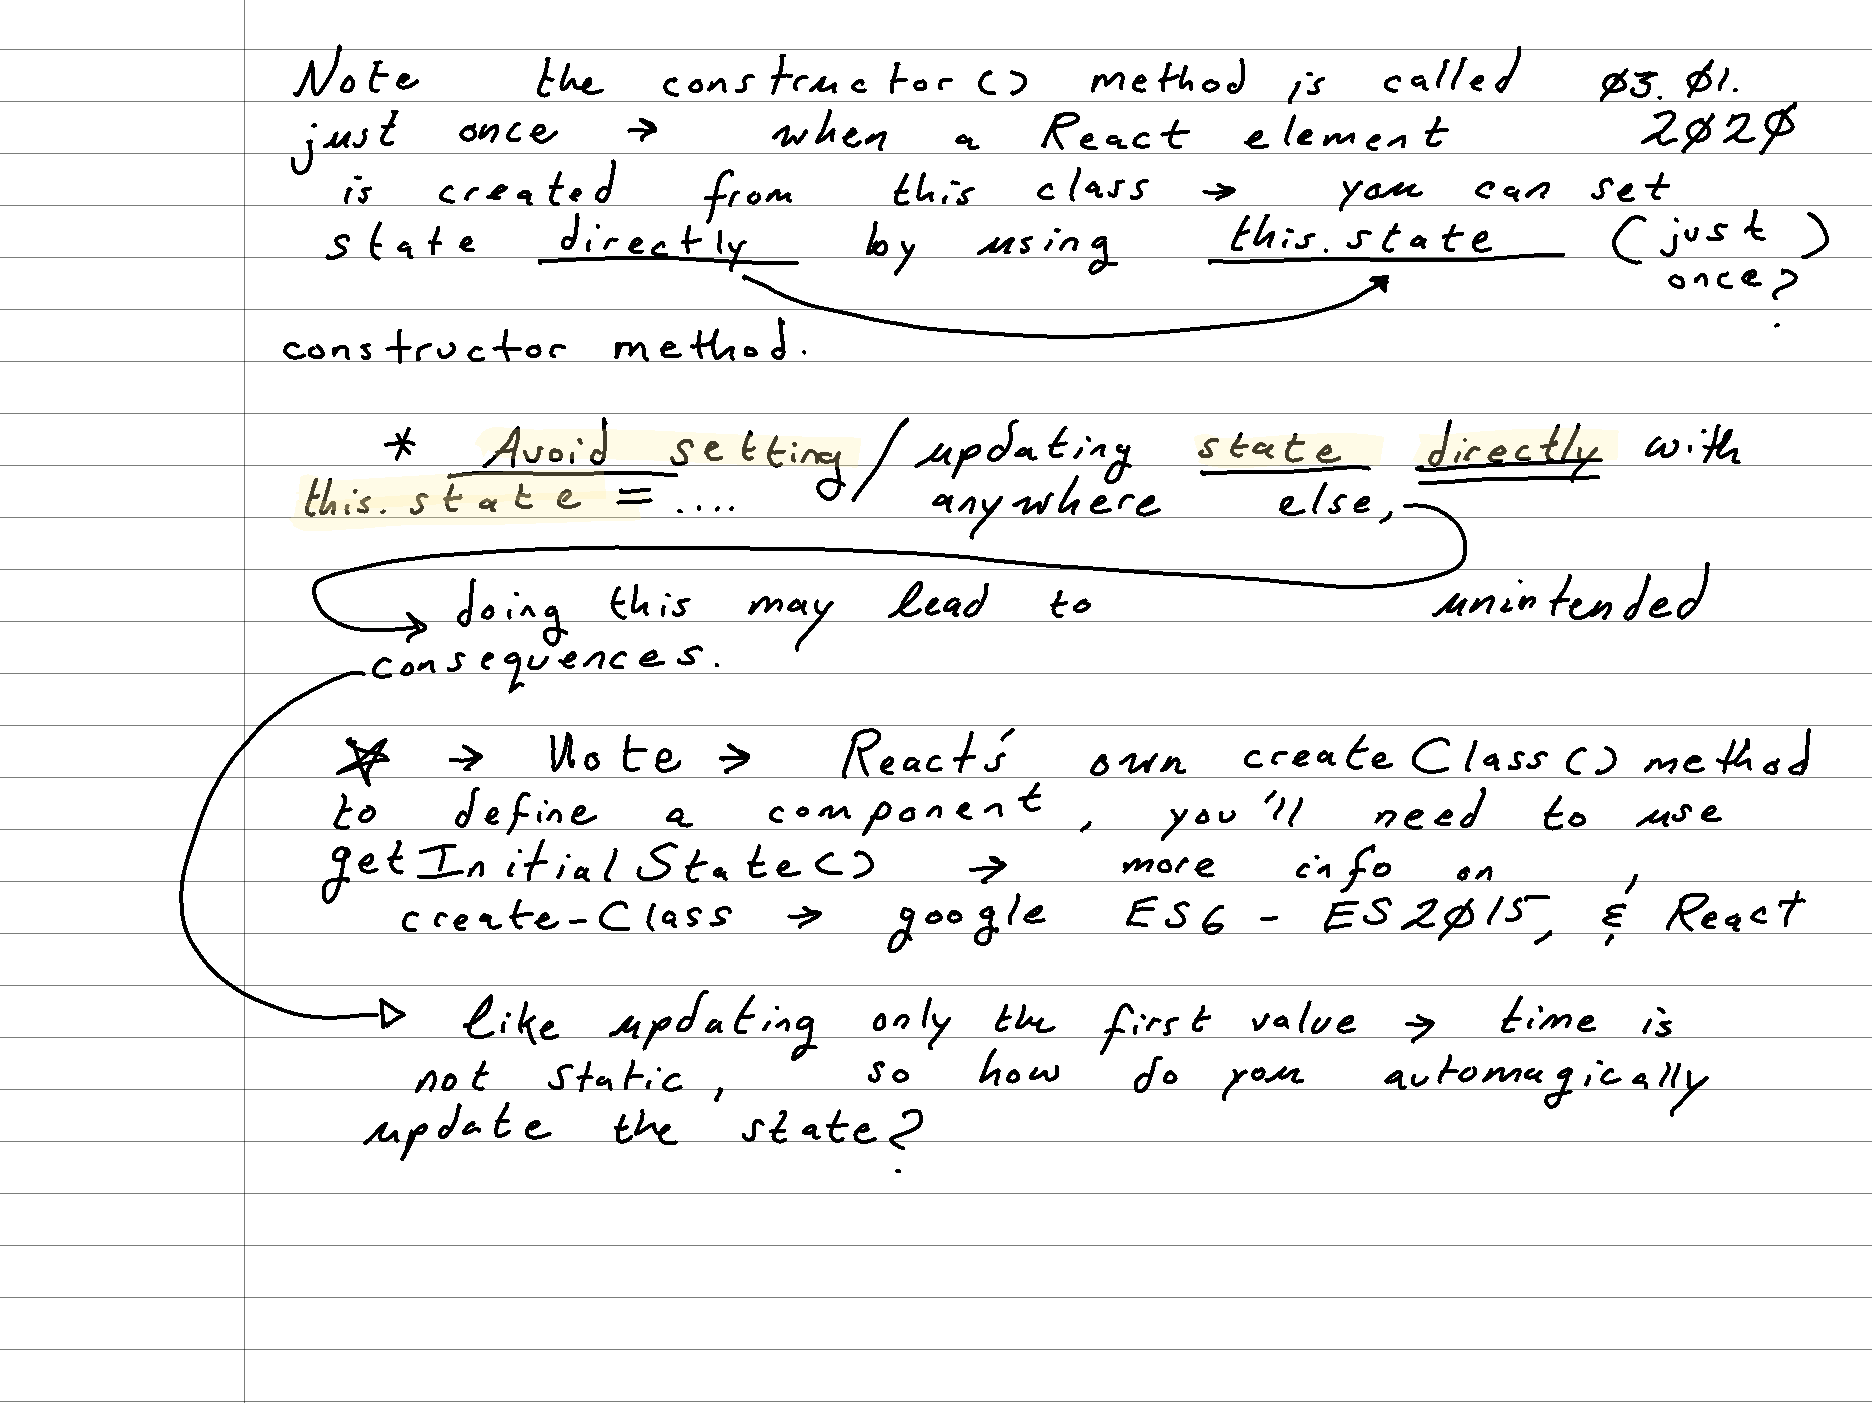 Note the constructor() method is called 03.01.
just once → when a React element 2020
is created from this class → you can set
state directly by using this.state (just)
once?
constructor method.
* Avoid setting/updating state directly with
this.state = .... anywhere else,
→ doing this may lead to unintended
consequences.
☆ → Note → React's own createClass() method
to define a component, you'll need to use
getInitialState() → more info on
create-Class → google ES6 - ES2015, & React
▷ like updating only the first value → time is
not static, so how do you automagically
update the state?